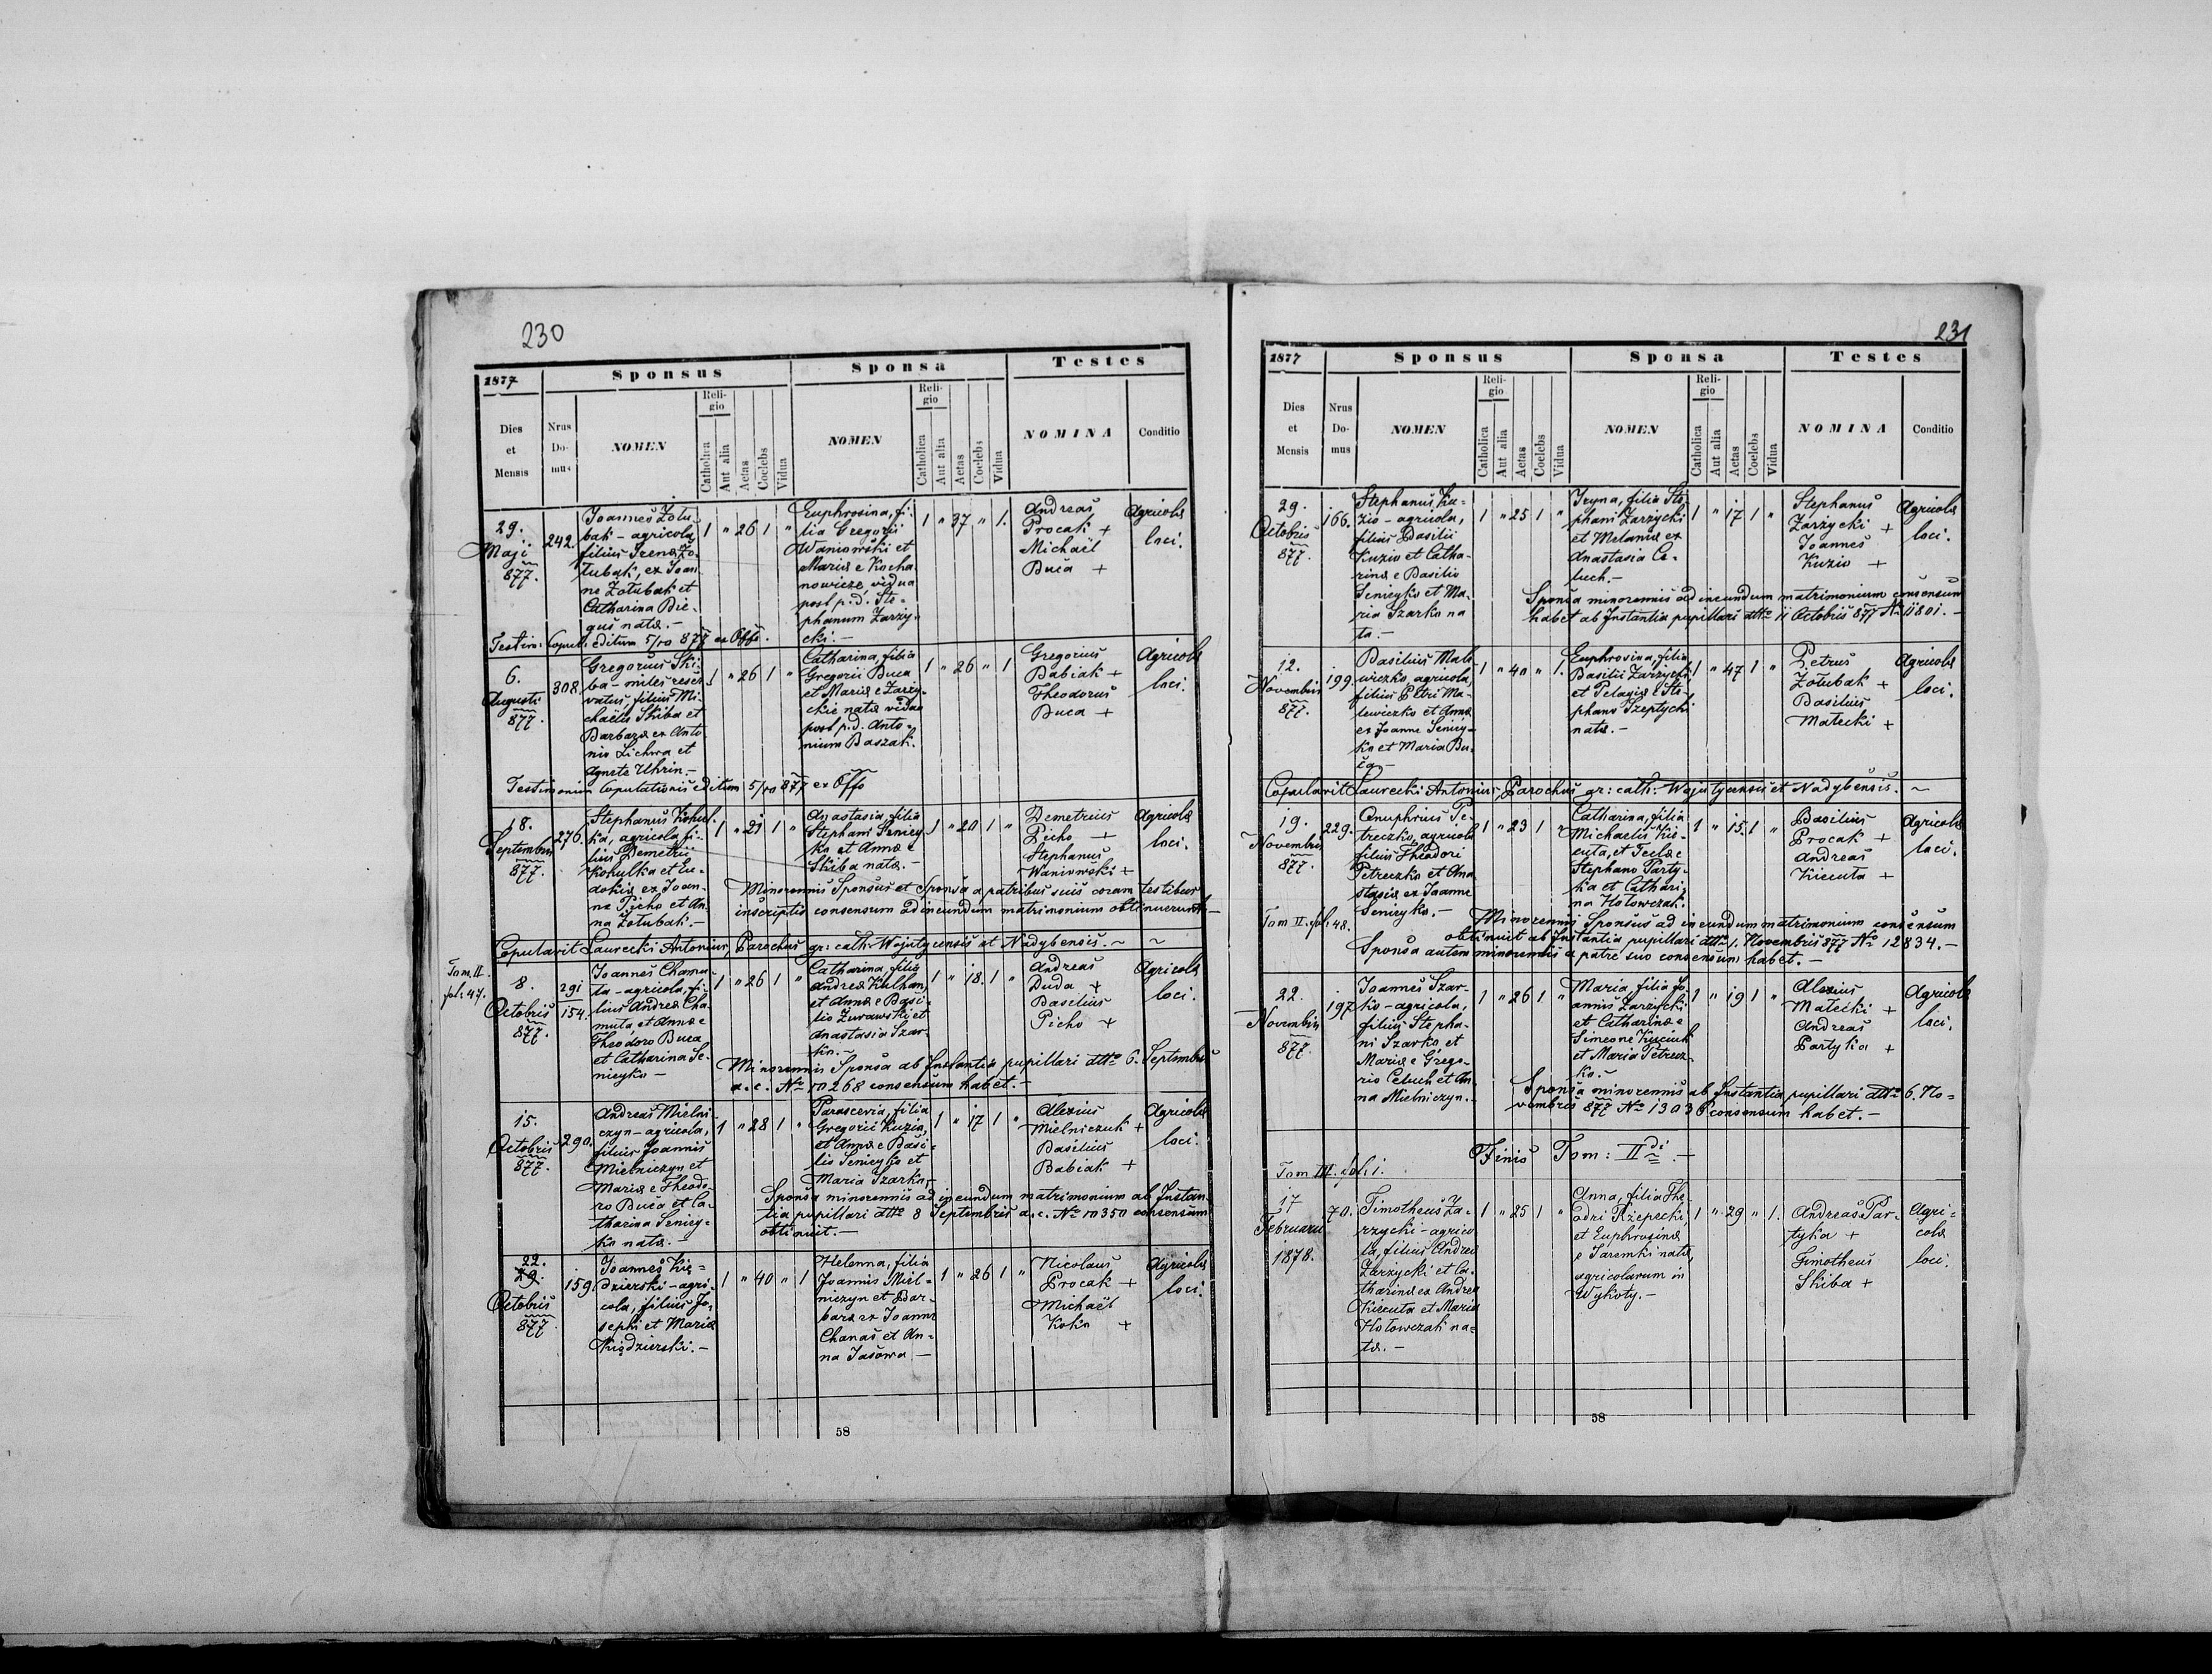 230
1877
Sponsus
Sponsa
Testes
Dies et Mensis
Nrus Domus
NOMEN
Religio
Catholica
Aut alia
Aetas
Coelebs
Vidua
NOMEN
Religio
Catholica
Aut alia
Aetas
Coelebs
Vidua
NOMINA
Conditio
29.
Maji
877.
242.
Joannes Zołu-
bak - agricola
filius Zo-
łubak, ex Joan
ne Zołubak et
Catharina Bie-
guś natæ.-
1 " 26 1 "
Euphrosina, fi-
lia Gregorii
Waniowski et
Mariæ e Kocha
nowicze, vidua
post p.d. Ste-
phanum Zarzy-
cki.-
1 " 37 " 1.
Andreas
Procak +
Michaël
Buca +
Agricolæ
loci.
Testim: Copul: editum 5/10 877 ex Offo.
6.
Augusti
877.
308.
Gregorius Ski-
ba - miles reser
vatus, filius Mi-
chaëlis Skiba et
Barbaræ ex Anto
nio Lichwa et
Agnete Uhrin.-
1 " 26 1 "
Catharina, filia
Gregorii Buca
et Mariæ e Zarzy-
ckie natæ vidua
post p.d. Anto-
nium Baszak.
1 " 26 " 1
Gregorius
Babiak +
Theodorus
Buca +
Agricolæ
loci.
Testimonium Copulationis editum 5/10 877 ex Offo
18.
Septembris
877.
276.
Stephanus Kohul-
ka, agricola fi-
lius Demetrii
Kohulka et Eu-
dokiæ ex Joan-
ne Picho et An-
na Zołubak.-
1 " 21 1 "
Anastasia, filia
Stephani Senicy
ko et Annæ e
Skiba natæ.-
1 " 20 1 "
Demetrius
Picho +
Stephanus
Waniowski +
Agricolæ
loci.
Minorennis Sponsus et Sponsa a patribus suis coram testibus
inscriptis consensum ad ineundum matrimonium obtinuerunt.-
Copulavit Laurecki Antonius, Parochus gr: cath: Wojutycensis et Nadybensis. ~ ~
Tom. II.
fol: 47.
8.
Octobris
877.
291
154.
Joannes Chamu-
ta - agricola, fi-
lius Andreæ Cha
muta, et Annæ e
Theodoro Buca
et Catharina Se-
nicyko -
1 " 26 1 "
Catharina, filia
Andreæ Kulhan,
et Annæ e Basi-
lio Zurawski et
Anastasia Szar-
ko.-
1 " 18. 1 "
Andreas
Duda +
Basilius
Picho +
Agricolæ
loci.
Minorennis Sponsa ab Instantia pupillari dtto 6. Septembris
a.c. No 10268 consensum habet.-
15.
Octobris
877.
290.
Andreas Mielni-
czyn - agricola,
filius Joannis
Mielniczyn et
Mariæ e Theodo-
ro Buca et Ca-
tharina Senicy-
ko natæ.-
1 " 28 1 "
Parascevia, filia
Gregorii Kuzio,
et Annæ e Basi-
lio Senicyko et
Maria Szarko.-
1 " 17 1 "
Alexius
Mielniczuk +
Basilius
Babiak +
Agricolæ
loci.
Sponsa minorennis ad ineundum matrimonium ab Instan-
tia pupillari dtto 8 Septembris a.c. No 10350 consensum
obtinuit.-
22.
29.
Octobris
877
159.
Joannes Kię-
dzierski - agri-
cola, filius Jo-
sephi et Mariæ
Kiędzierski.-
1 " 40 " 1
Helenna, filia
Joannis Miel-
niczyn et Bar-
baræ ex Joanne
Chanas et An-
na Jasowa -
1 " 26 1 "
Nicolaus
Procak +
Michaël
Koka +
Agricolæ
loci.
58
231
1877
Sponsus
Sponsa
Testes
Dies et Mensis
Nrus Domus
NOMEN
Religio
Catholica
Aut alia
Aetas
Coelebs
Vidua
NOMEN
Religio
Catholica
Aut alia
Aetas
Coelebs
Vidua
NOMINA
Conditio
29.
Octobris
877.
166.
Stephanus Ku-
zio - agricola,
filius Basilii
Kuzio et Catha-
rinæ e Basilio
Senicyko et Ma-
ria Szarko na
ta.-
1 " 25 1 "
Iryna, filia Ste-
phani Zarzycki
et Melaniæ ex
Anastasia Ce-
luch.-
1 " 17 1 "
Stephanus
Zarzycki +
Joannes
Kuzio +
Agricolæ
loci.
Sponsa minorennis ad ineundum matrimonium consensum
habet ab Instantia pupillari dtto 11 Octobris 877 No 11801.-
12.
Novembris
877.
199.
Basilius Male
wiczko, agricola,
filius Petri Ma-
lewiczko et Annæ
ex Joanne Senicy-
ko et Maria Bu-
ca -
1 " 40 " 1.
Euphrosina, filia
Basilii Zarzycki,
et Pelagiæ e Ste-
phano Szeptycki
natæ.-
1 " 47 1 "
Petrus
Zołubak +
Basilius
Matecki +
Agricolæ
loci.
Copulavit Laurecki Antonius, Parochus gr: cath: Wojutycensis et Nadybensis. ~
19.
Novembris
877.
229.
Onuphrius Pe-
treczko, agricola
filius Theodori
Petreczko et Ana
stasiæ ex Joanne
Senicyko.-
1 " 23 1 "
Catharina, filia
Michaelis Kie-
cuta, et Teclæ e
Stephano Party-
ka et Cathari-
na Hołowczak.
1 " 15. 1 "
Basilius
Procak +
Andreas
Kiecuta +
Agricolæ
loci.
Tom II. fol: 48.
Minorennis Sponsus ad ineundum matrimonium consensum
obtinuit ab Instantia pupillari dtto 1. Novembris 877 No 12834.-
Sponsa autem minorennis a patre suo consensum habet.-
22.
Novembris
877.
197
Joannes Szar-
ko - agricola,
filius Stepha-
ni Szarko et
Mariæ e Grego-
rio Celuch et An-
na Mielniczyn.-
1 " 26 1 "
Maria, filia Jo-
annis Zarzycki
et Catharinæ e
Simeone Kuciuk
et Maria Petrecz-
ko.-
1 " 19 1 "
Alexius
Matecki +
Andreas
Partyka +
Agricolæ
loci.
Sponsa minorennis ab Instantia pupillari dtto 6. No-
vembris 877 No 13036 consensum habet.-
Finis Tom: IIdi.-
Tom III. fol: 1.
17
Februarii
1878.
70.
Timotheus Za-
rzycki - agrico
la, filius Andreæ
Zarzycki et Ca-
tharinæ ex Andrea
Kiecuta et Maria
Hołowczak na-
tæ.-
1 " 25 1 "
Anna, filia The-
odri Rzepecki
et Euphrosinæ
e Jaremki natæ,
agricolarum in
Wykoty.-
1 " 29 " 1.
Andreas Par-
tyka +
Timotheus
Skiba +
Agri-
colæ
loci.
58